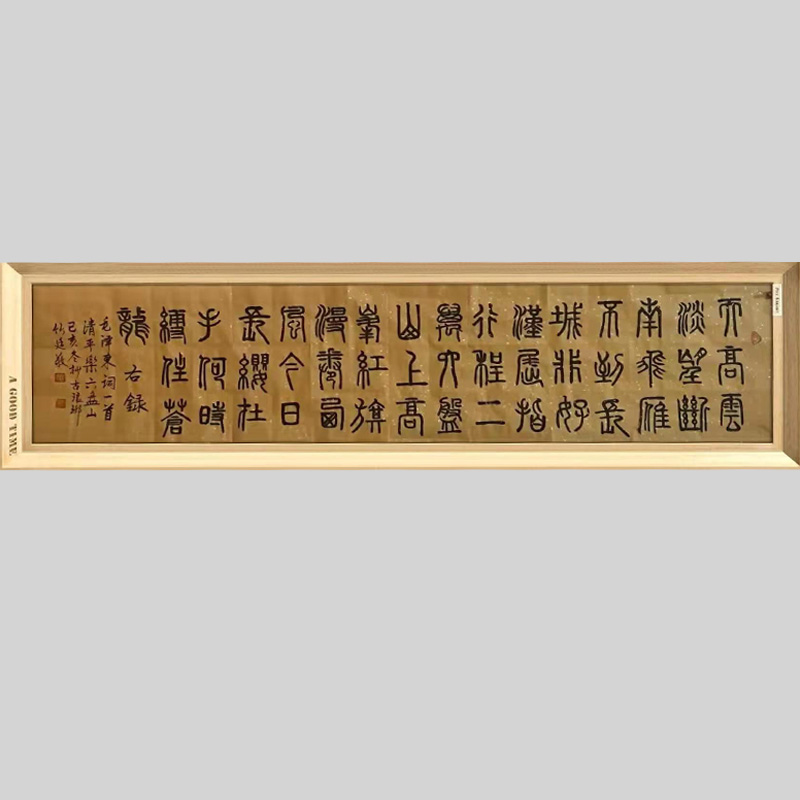 天高雲
淡望斷
南飛雁
不到長
城非好
漢屈指
行程二
萬六盤
山上高
峯紅旗
漫卷西
風今日
長纓在
手何時
縛住蒼
龍 右錄
毛澤東詞一首
清平樂六盘山
己亥冬抄古琅琊
A GOOD TIME